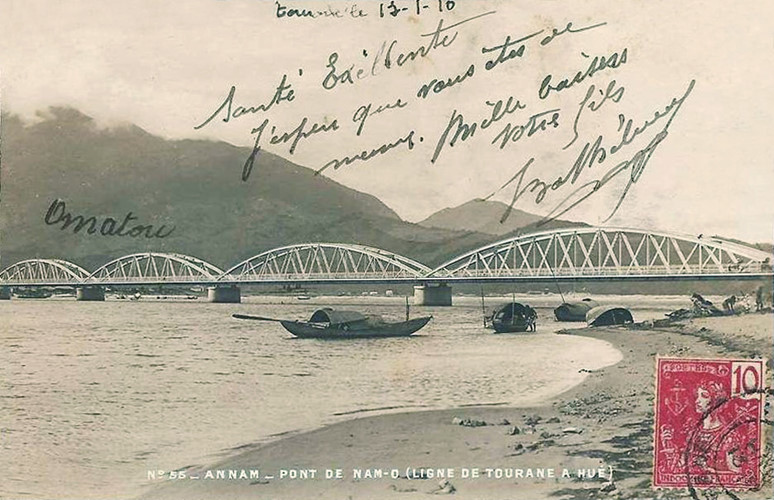 Tourane le 13-1-10
Santé Excéllente
J'espère que vous êtes de
meme. Mille baisers
Votre fils
Omatou
Nº 55 _ ANNAM _ PONT DE NAM-O (LIGNE DE TOURANE A HUÉ)
POSTES
10
INDO-CHINE FRANÇAISE